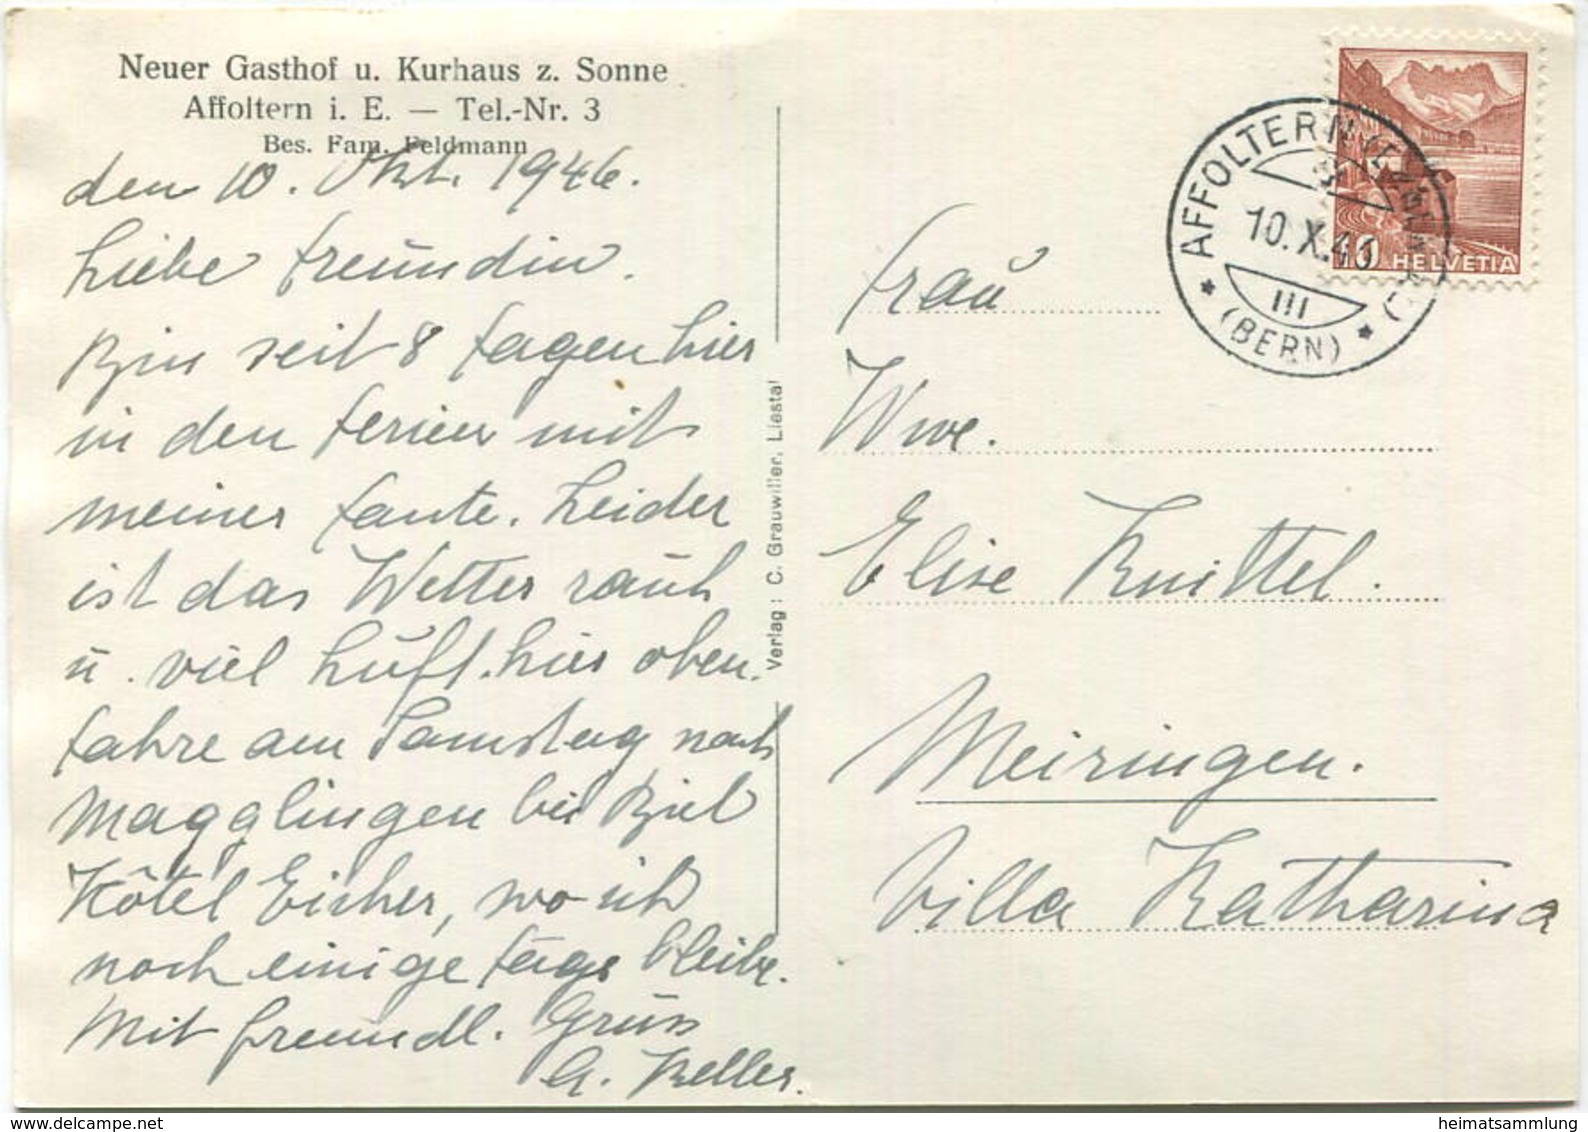 Neuer Gasthof u. Kurhaus z. Sonne
Affoltern i. E. — Tel.-Nr. 3
Bes. Fam. Feldmann
den 10. Okt. 1946.
Liebe Freundin.
Bin seit 8 Tagen hier
in den Ferien mit
meiner Tante. Leider
ist das Wetter rauh
u. viel Luft. hier oben.
Fahre am Samstag nach
Magglingen bei Biel
Hôtel Eicher, wo ich
noch einige Tage bleibe.
Mit freundl. Gruss
A. Keller.
Verlag: C. Grauwiller, Liestal
AFFOLTERN (EMMENTAL)
10.X.46
III
(BERN)
10 HELVETIA
Frau
Wwe.
Elise Knittel.
Meiringen.
Villa Katharina
heimatsammlung.com